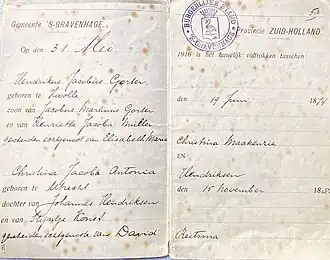 Gemeente 'S-GRAVENHAGE.
Op den 31 Mei
Hendrikus Jacobus Gorter
geboren te Zwolle
zoon van Jacobus Martinus Gorter
en van Henrietta Jacoba Müller
gescheiden echtgenoot van Elisabeth Maria
Christina Jacoba Antonia
geboren te Utrecht
dochter van Johannes Hendriksen
en van Konst
gescheiden echtgenoote van David
BURGERLIJKE STAND
'S-GRAVENHAGE
Provincie ZUID-HOLLAND.
1916 is het huwelijk voltrokken tusschen:
den 19 Juni 187
Christina Maakenzie
EN
Hendriksen
den 15 November 18
Reitsma